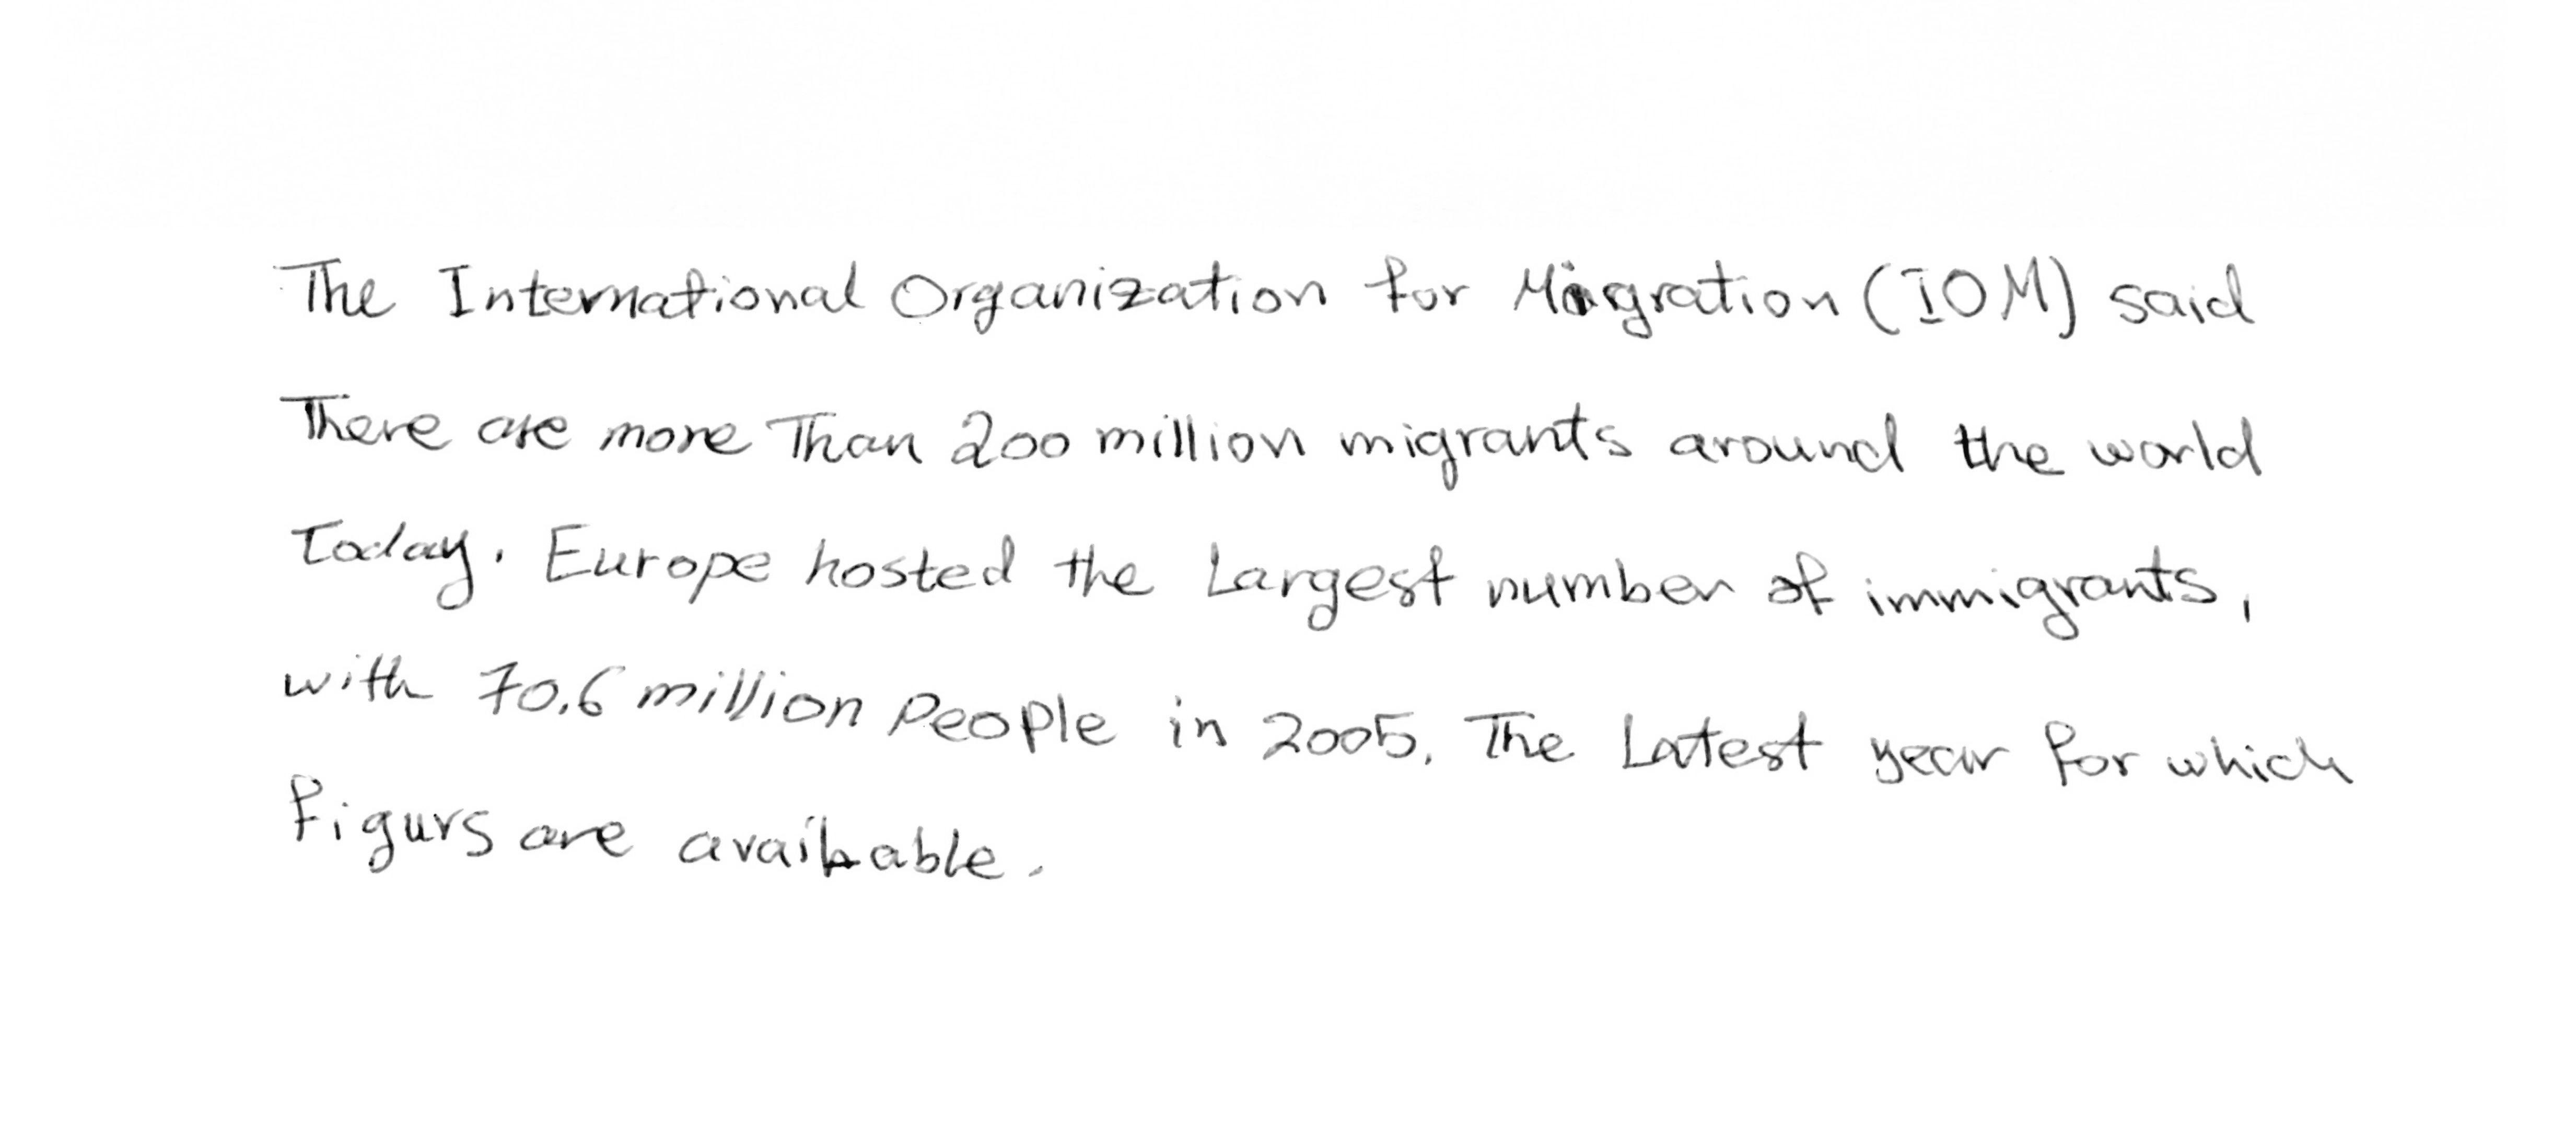 The International Organization for Migration (IOM) said
There are more Than 200 million migrants around the world
Today. Europe hosted the Largest number of immigrants,
with 70.6 million People in 2005. The Latest year for which
Figurs are available.